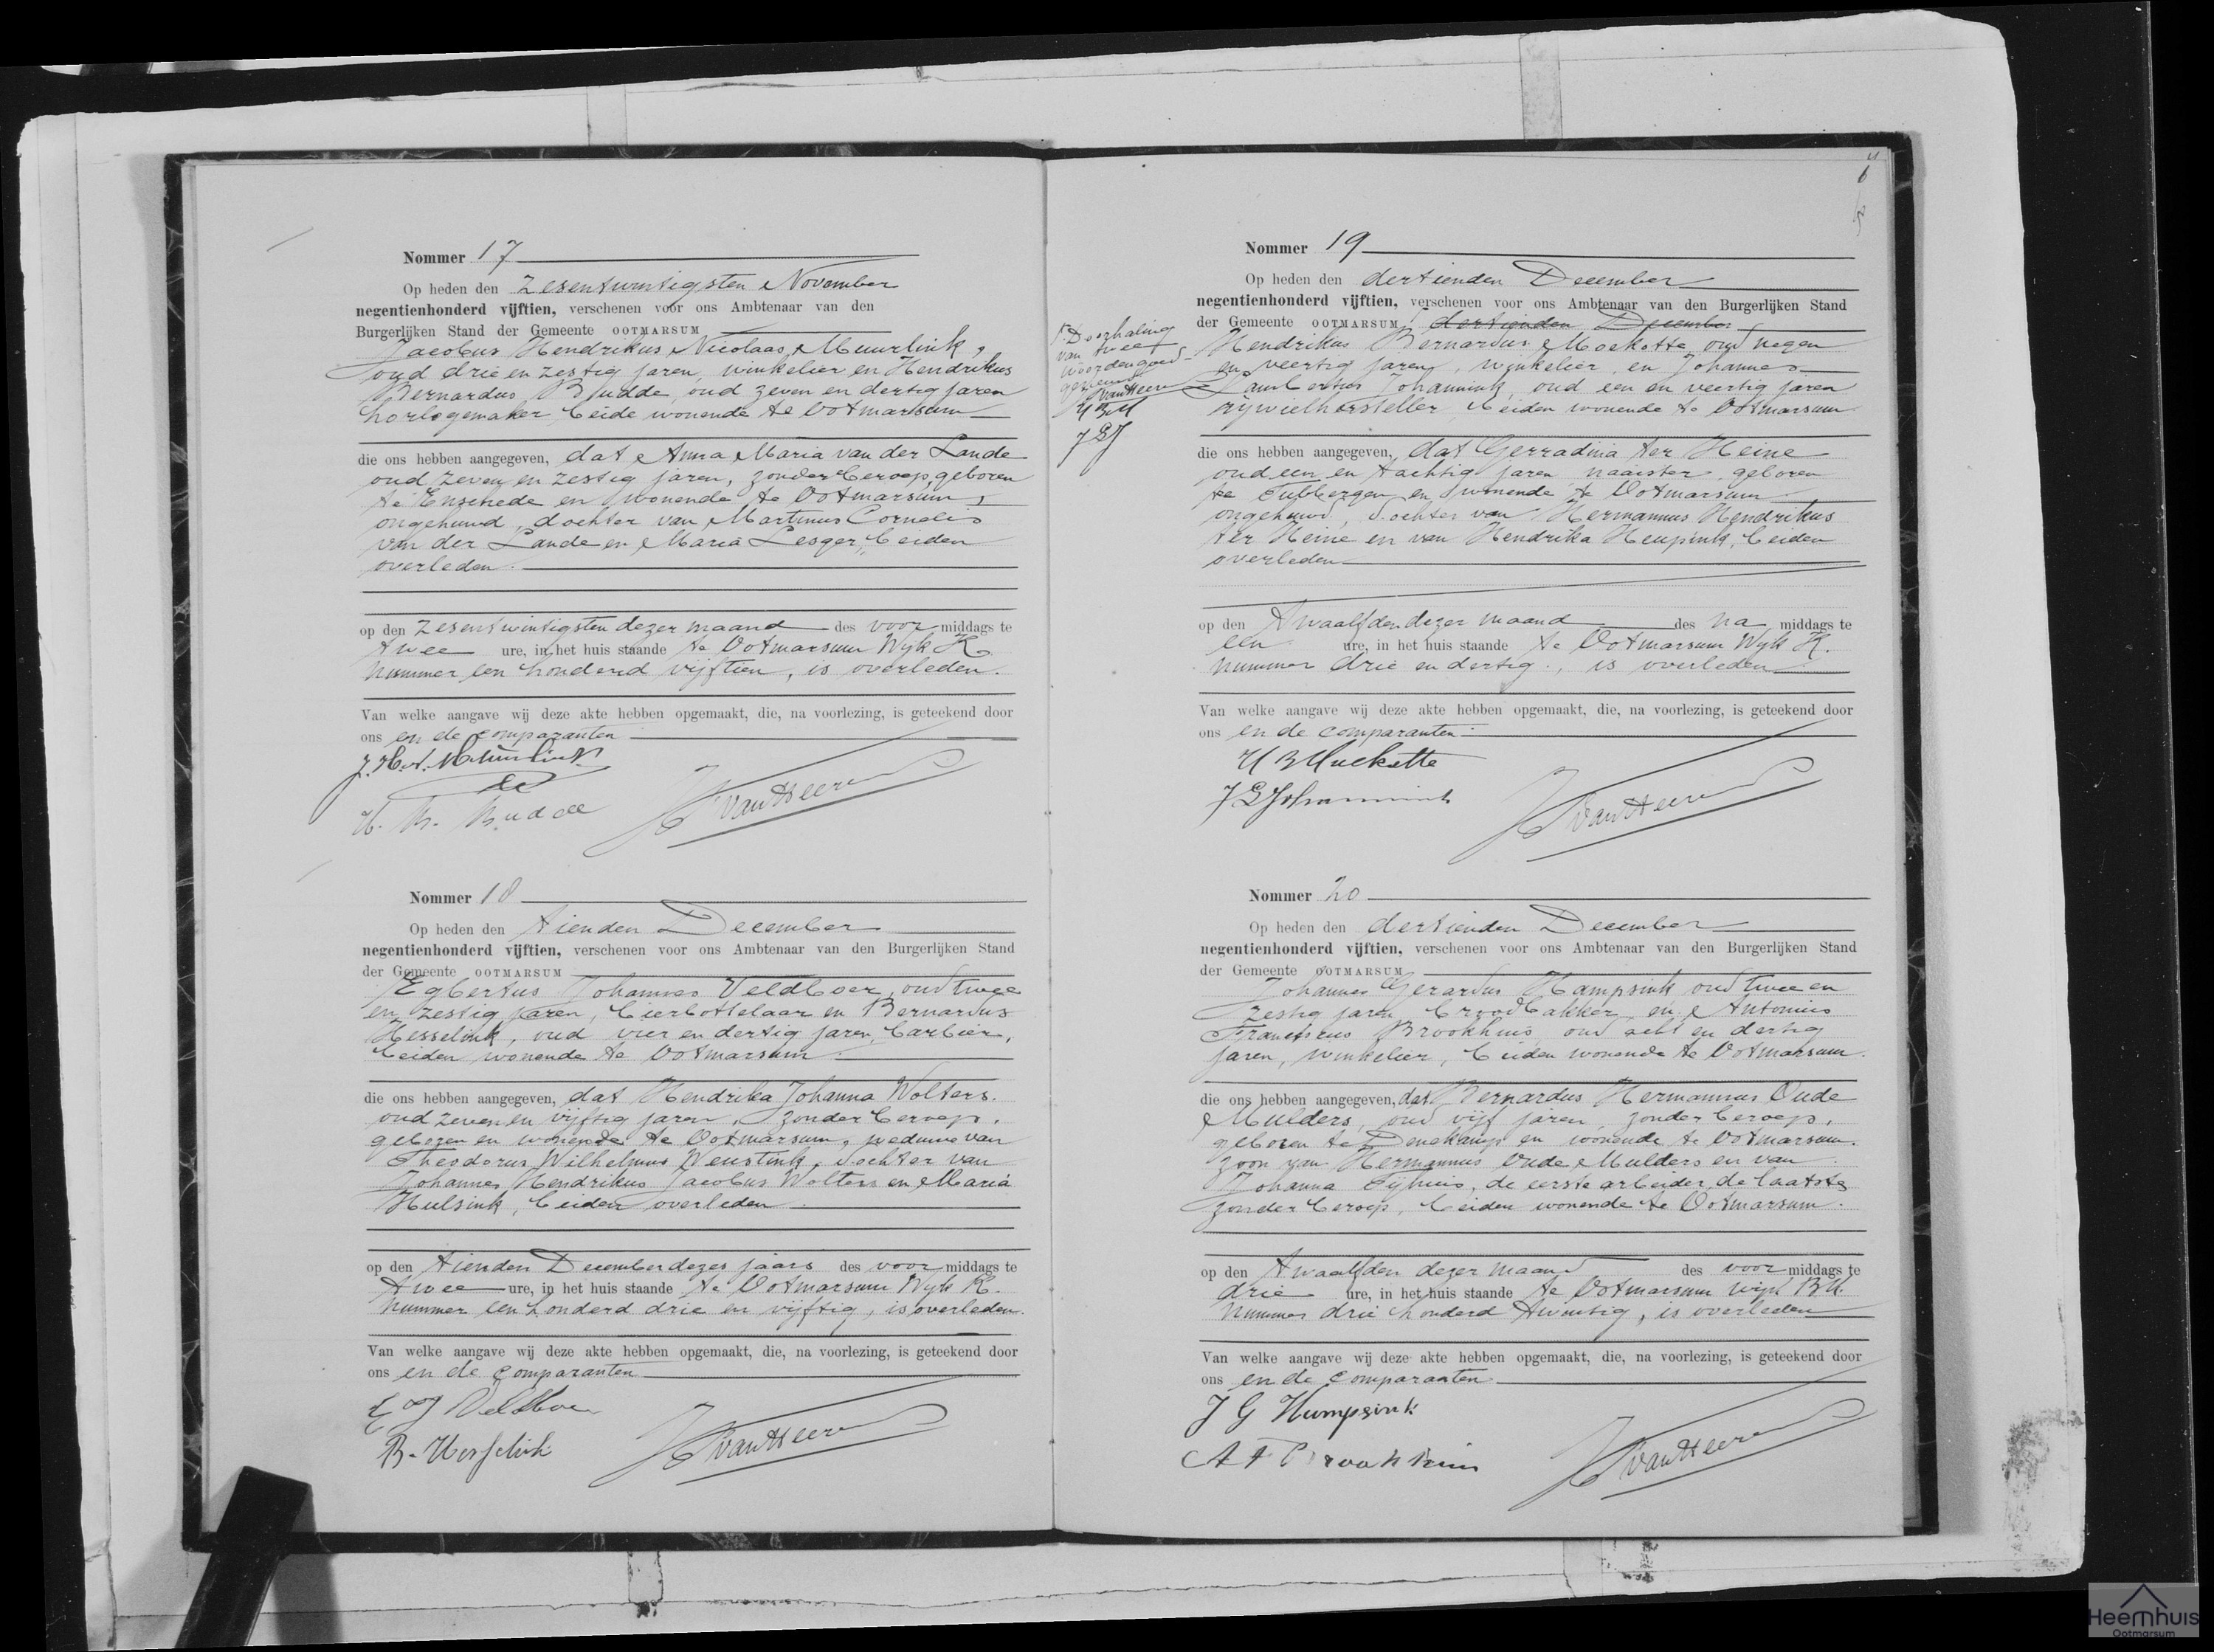 Nommer 17
Op heden den zesentwintigsten November
negentienhonderd vijftien, verschenen voor ons Ambtenaar van den
Burgerlijken Stand der Gemeente OOTMARSUM
Jacobus Hendrikus Nicolaas Muurlink,
oud drie en zestig jaren, winkelier en Hendrikus
Bernardus Budde, oud zeven en dertig jaren
horlogemaker, beide wonende te Ootmarsum
die ons hebben aangegeven, dat Anna Maria van der Lande
oud zeven en zestig jaren, zonder beroep, geboren
te Enschede en wonende te Ootmarsum,
ongehuwd, dochter van Martinus Cornelis
van der Lande en Maria Lesger, beiden
overleden.
op den zesentwintigsten dezer maand des voor middags te
twee ure, in het huis staande te Ootmarsum Wijk K.
nummer een honderd vijftien, is overleden.
Van welke aangave wij deze akte hebben opgemaakt, die, na voorlezing, is geteekend door
ons en de comparanten
J. H. N. Muurlink
H. B. Budde
van Heere
Nommer 18
Op heden den tienden December
negentienhonderd vijftien, verschenen voor ons Ambtenaar van den Burgerlijken Stand
der Gemeente OOTMARSUM
Egbertus Johannes Veldboer, oud twee
en zestig jaren, bierbottelaar en Bernardus
Hesselink, oud vier en dertig jaren, barbier,
beiden wonende te Ootmarsum.
die ons hebben aangegeven, dat Hendrika Johanna Wolters.
oud zeven en vijftig jaren, zonder beroep,
geboren en wonende te Ootmarsum, weduwe van
Theodorus Wilhelmus Weustink, dochter van
Johannes Hendrikus Jacobus Wolters en Maria
Hulsink, beiden overleden.
op den tienden December dezes jaars des voor middags te
twee ure, in het huis staande te Ootmarsum Wijk K.
nummer een honderd drie en vijftig, is overleden.
Van welke aangave wij deze akte hebben opgemaakt, die, na voorlezing, is geteekend door
ons en de comparanten
Veldboer
B. Hesselink
van Heere
Nommer 19
Op heden den dertienden December
negentienhonderd vijftien, verschenen voor ons Ambtenaar van den Burgerlijken Stand
der Gemeente OOTMARSUM, dertienden December
Hendrikus Bernardus Moekotte oud negen
en veertig jaren, winkelier, en Johannes
Lambertus Johannink, oud een en veertig jaren
rijwielhersteller, beiden wonende te Ootmarsum
Doorhaling
van twee
woorden goed-
gekeurd
van Heere
H B M
J L J
die ons hebben aangegeven, dat Gerradina ter Heine
oud een en tachtig jaren naaister, geboren
te Tubbergen en wonende te Ootmarsum
ongehuwd, dochter van Hermannus Hendrikus
ter Heine en van Hendrika Heupink, beiden
overleden
op den twaalfden dezer maand des na middags te
een ure, in het huis staande te Ootmarsum Wijk K.
nummer drie en dertig, is overleden
Van welke aangave wij deze akte hebben opgemaakt, die, na voorlezing, is geteekend door
ons en de comparanten.
H B Moekotte
J L Johannink
van Heere
Nommer 20
Op heden den dertienden December
negentienhonderd vijftien, verschenen voor ons Ambtenaar van den Burgerlijken Stand
der Gemeente OOTMARSUM
Johannes Gerardus Kampsink oud twee en
zestig jaren, broodbakker, en Antonius
Franciscus Brookhuis, oud acht en dertig
jaren, winkelier, beiden wonende te Ootmarsum.
die ons hebben aangegeven, dat Bernardus Hermannus Oude
Mulders, oud vijf jaren, zonder beroep,
geboren te Denekamp en wonende te Ootmarsum.
zoon van Hermannus Oude Mulders en van
Johanna Tijhuis, de eerste arbeider, de laatste
zonder beroep, beiden wonende te Ootmarsum.
op den twaalfden dezer maand des voor middags te
drie ure, in het huis staande te Ootmarsum wijk
nummer drie honderd twintig, is overleden
Van welke aangave wij deze akte hebben opgemaakt, die, na voorlezing, is geteekend door
ons en de comparanten.
J G Kampsink
A F Brookhuis
van Heere
Heemhuis
Ootmarsum